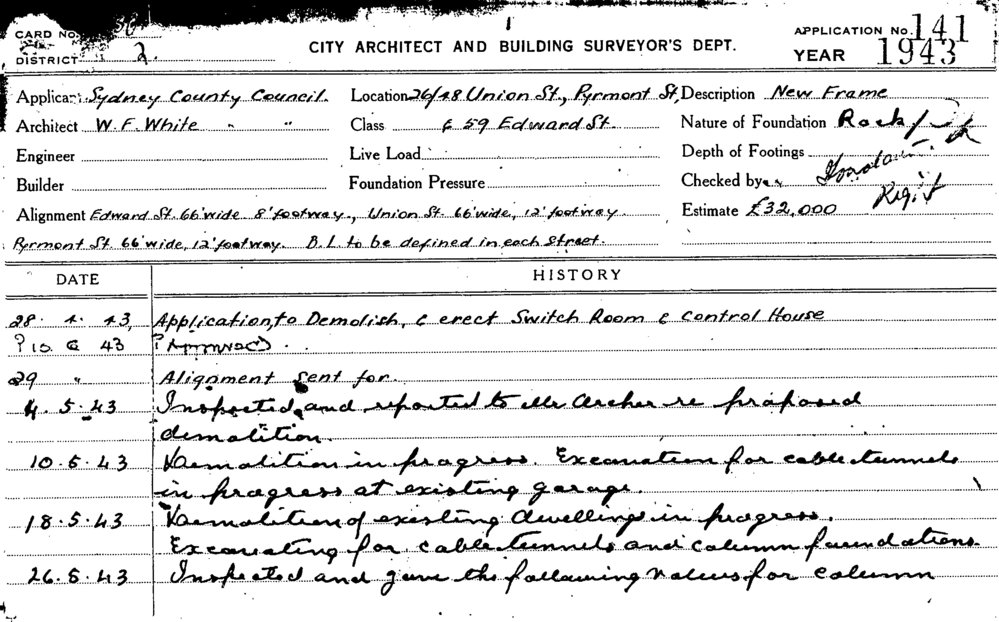 CARD No.
DISTRICT 2.
CITY ARCHITECT AND BUILDING SURVEYOR'S DEPT.
APPLICATION No. 141
YEAR 1943
Applicant Sydney County Council. Location 26/48 Union St., Pyrmont St, Description New Frame
Architect W. F. White " " Class & 59 Edward St. Nature of Foundation Rock
Engineer Live Load Depth of Footings
Builder Foundation Pressure Checked by
Alignment Edward St. 66' wide 8' footway., Union St. 66' wide, 12' footway. Estimate £32,000
Pyrmont St. 66' wide, 12' footway. B.L. to be defined in each street.
DATE HISTORY
28. 4. 43, Application, to Demolish, & erect Switch Room & Control House
43 Approved
29 " Alignment sent for.
4. 5. 43 Inspected and reported to Mr Archer re proposed
demolition.
10. 5. 43 Demolition in progress. Excavation for cable tunnels
in progress at existing garage.
18. 5. 43 Demolition of existing dwellings in progress.
Excavating for cable tunnels and column foundations.
26. 5. 43 Inspected and gave the following values for column